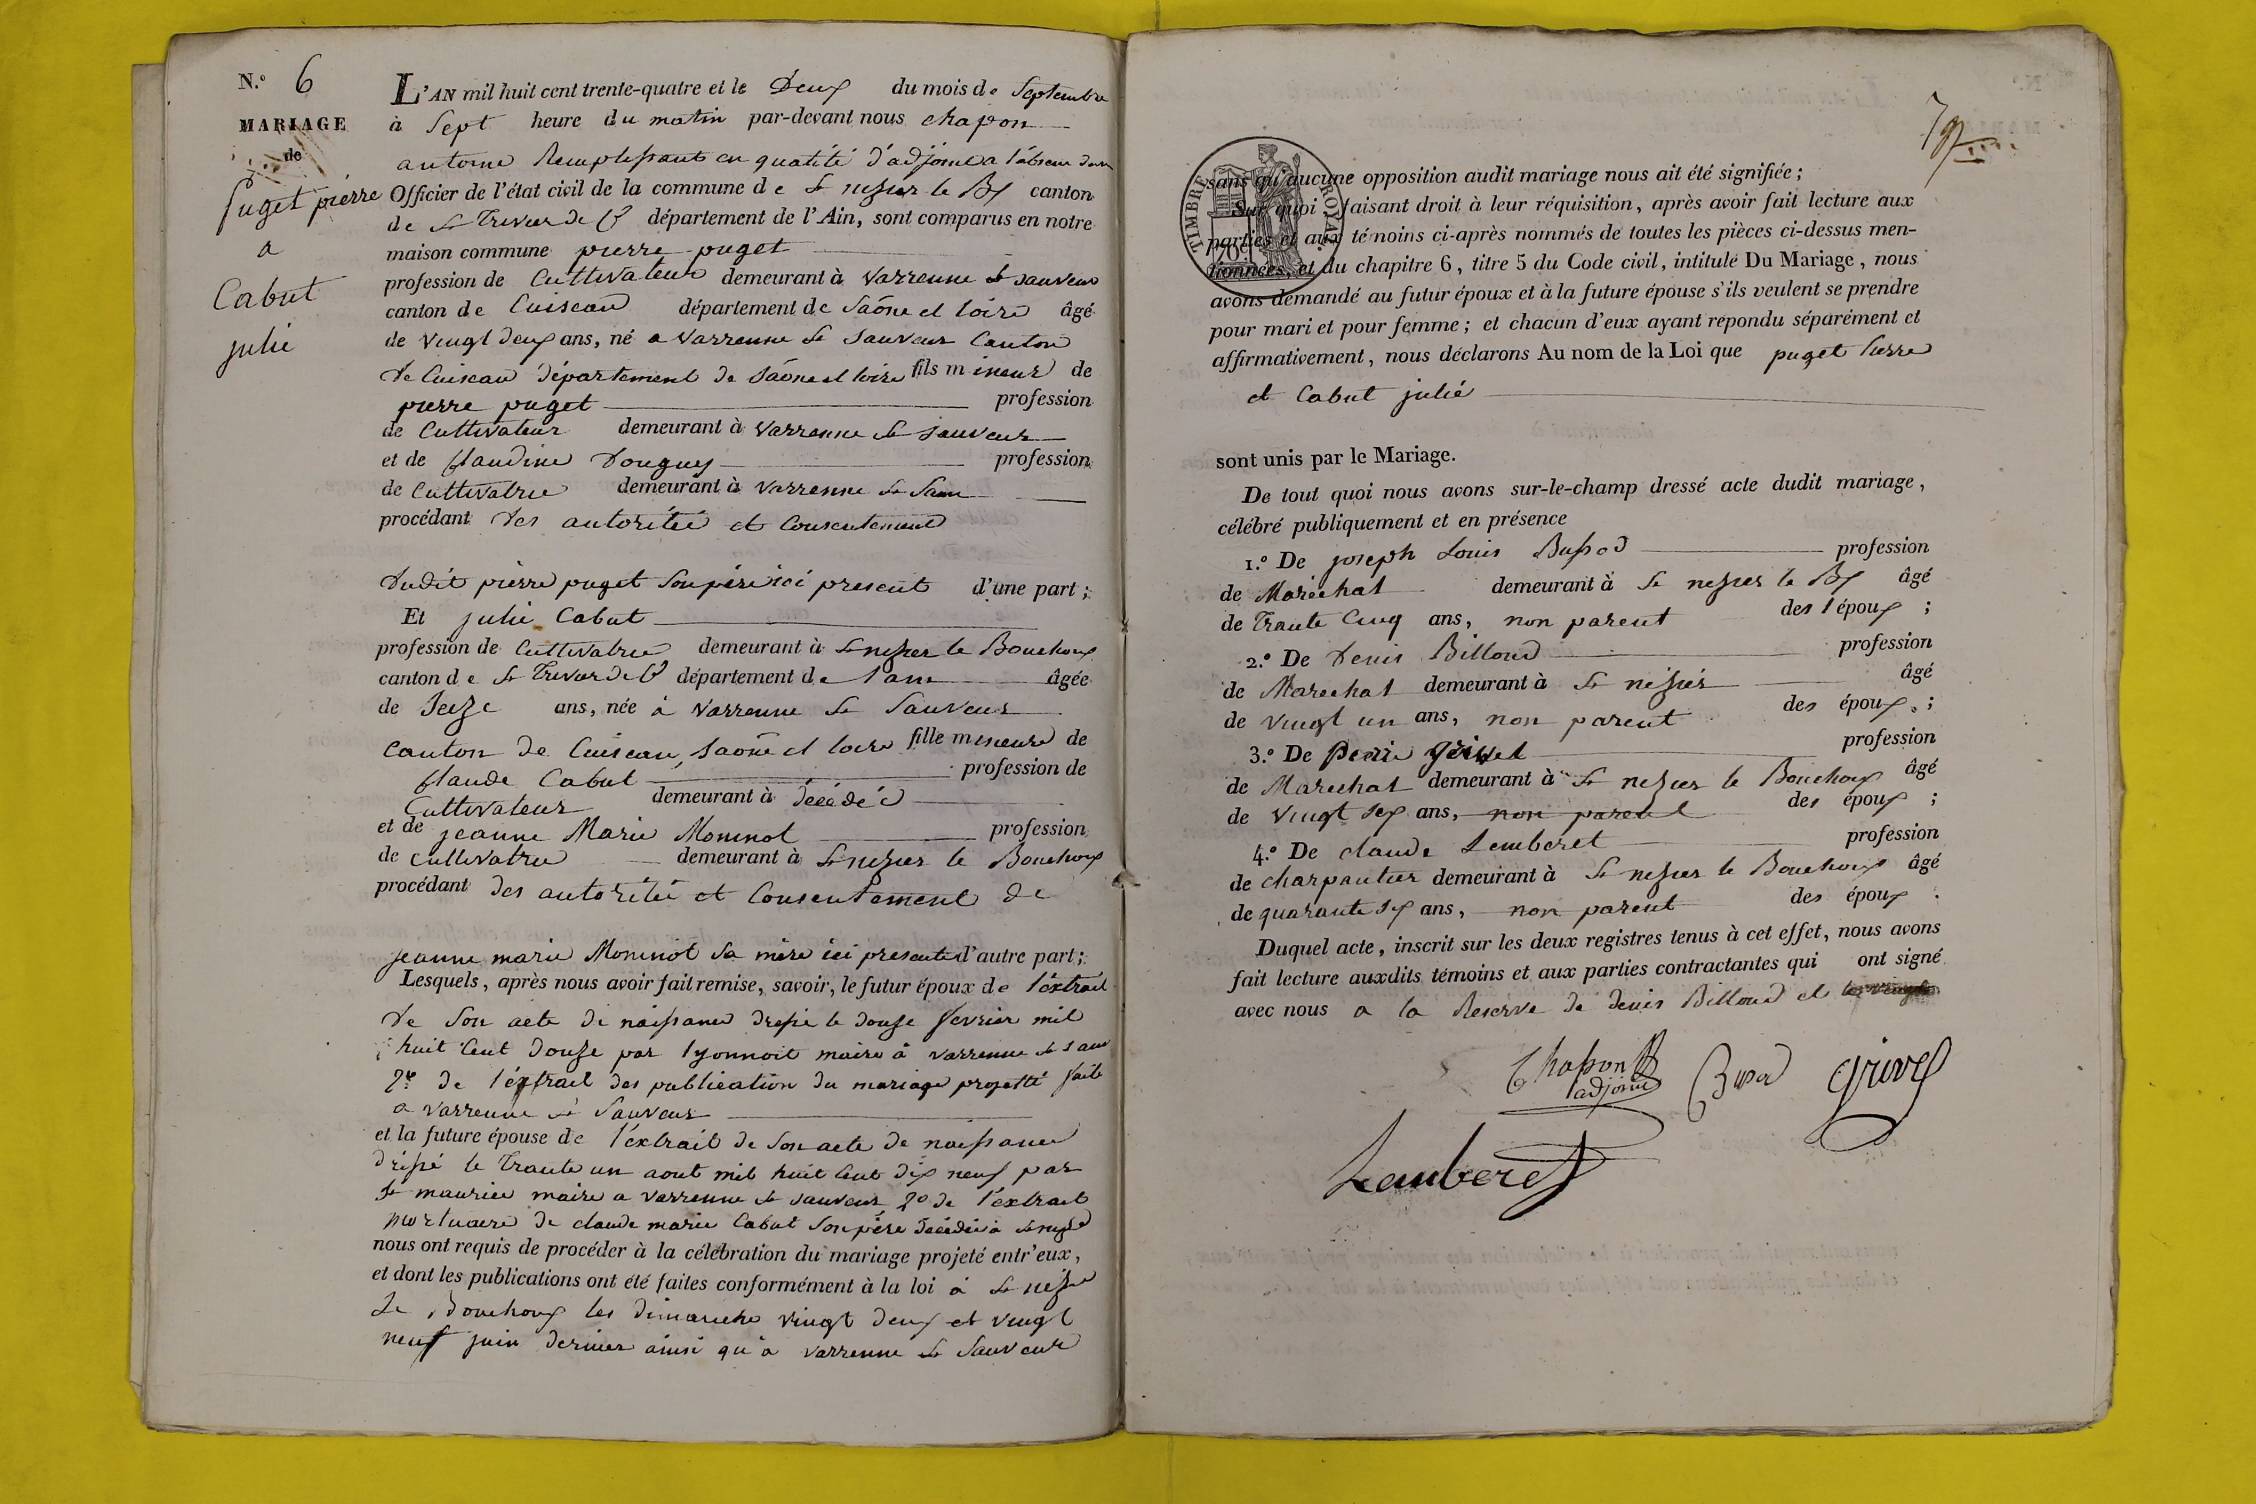 N.o 6
MARIAGE
de
puget pierre
a
Cabut
julie
L'AN mil huit cent trente-quatre et le Deux du mois de Septembre
à Sept heure du matin par-devant nous chapon
antoine Remplissant en qualité d'adjoint a l'absence
Officier de l'état civil de la commune de St nizier le Bx canton
de St Trivier de Cs département de l'Ain, sont comparus en notre
maison commune pierre puget
profession de Cultivateur demeurant à Varrenne St sauveur
canton de Cuiseau département de Saône et loire âgé
de vingt deux ans, né a Varrenne St Sauveur Canton
de Cuiseau département de Saône et loire fils mineur de
pierre puget profession
de Cultivateur demeurant à Varrenne St Sauveur
et de Claudine Donguy profession
de Cultivatrice demeurant à Varrenne St Sauv
procédant des autorité et Consentement
dudit pierre puget Son père ici present d'une part ;
Et julie Cabut
profession de Cultivatrice demeurant à St nizier le Bouchoux
canton de St Trivier de Cs département de l'ain âgée
de Seize ans, née à Varrenne St Sauveur
Canton de Cuiseau, Saône et loire fille mineure de
Claude Cabut profession de
Cultivateur demeurant à décédé
et de jeanne Marie Moninot profession
de Cultivatrice demeurant à St nizier le Bouchoux
procédant des autorité et Consentement de
jeanne marie Moninot sa mère ici presente d'autre part ;
Lesquels, après nous avoir fait remise, savoir, le futur époux de l'extrait
de Son acte de naissance dressé le douze fevrier mil
huit Cent douze par lyonnoit maire à varrenne St Sauv
2e de l'extrait des publication du mariage projetté faite
a varrenne St Sauveur
et la future épouse de l'extrait de Son acte de naissance
dressé le Trante un aout mil huit Cent dix neuf par
St maurice maire a varrenne St sauveur 2o de l'extrait
mortuaire de claude marie Cabut Son père décédé à St nizie
nous ont requis de procéder à la célébration du mariage projeté entr'eux,
et dont les publications ont été faites conformément à la loi à St nizie
le Bouchoux les dimanche vingt deux et vingt
neuf juin dernier ainsi qu'à varrenne St Sauveur
TIMBRE ROYAL
sans qu'aucune opposition audit mariage nous ait été signifiée ;
Sur quoi faisant droit à leur réquisition, après avoir fait lecture aux
parties et aux témoins ci-après nommés de toutes les pièces ci-dessus men-
tionnées, et du chapitre 6, titre 5 du Code civil, intitulé Du Mariage, nous
avons demandé au futur époux et à la future épouse s'ils veulent se prendre
pour mari et pour femme ; et chacun d'eux ayant répondu séparément et
affirmativement, nous déclarons Au nom de la Loi que puget pierre
et Cabut julié
sont unis par le Mariage.
De tout quoi nous avons sur-le-champ dressé acte dudit mariage,
célébré publiquement et en présence
1.o De joseph Louis Bussod profession
de Maréchal demeurant à St nizier le Bx âgé
de Trante Cinq ans, non parent des époux ;
2.o De Denis Billoud profession
de Marechal demeurant à St nizier âgé
de vingt un ans, non parent des époux ;
3.o De grivel profession
de Marechal demeurant à St nizier le Bouchoux âgé
de vingt sex ans, non parent des époux ;
4.o De claude Lemberet profession
de charpantier demeurant à St nizier le Bouchoux âgé
de quarante sex ans, non parent des époux .
Duquel acte, inscrit sur les deux registres tenus à cet effet, nous avons
fait lecture auxdits témoins et aux parties contractantes qui ont signé
avec nous a la Reserve de denis Billoud et
Chapon
adjoint
Busod
grivel
Lamberet